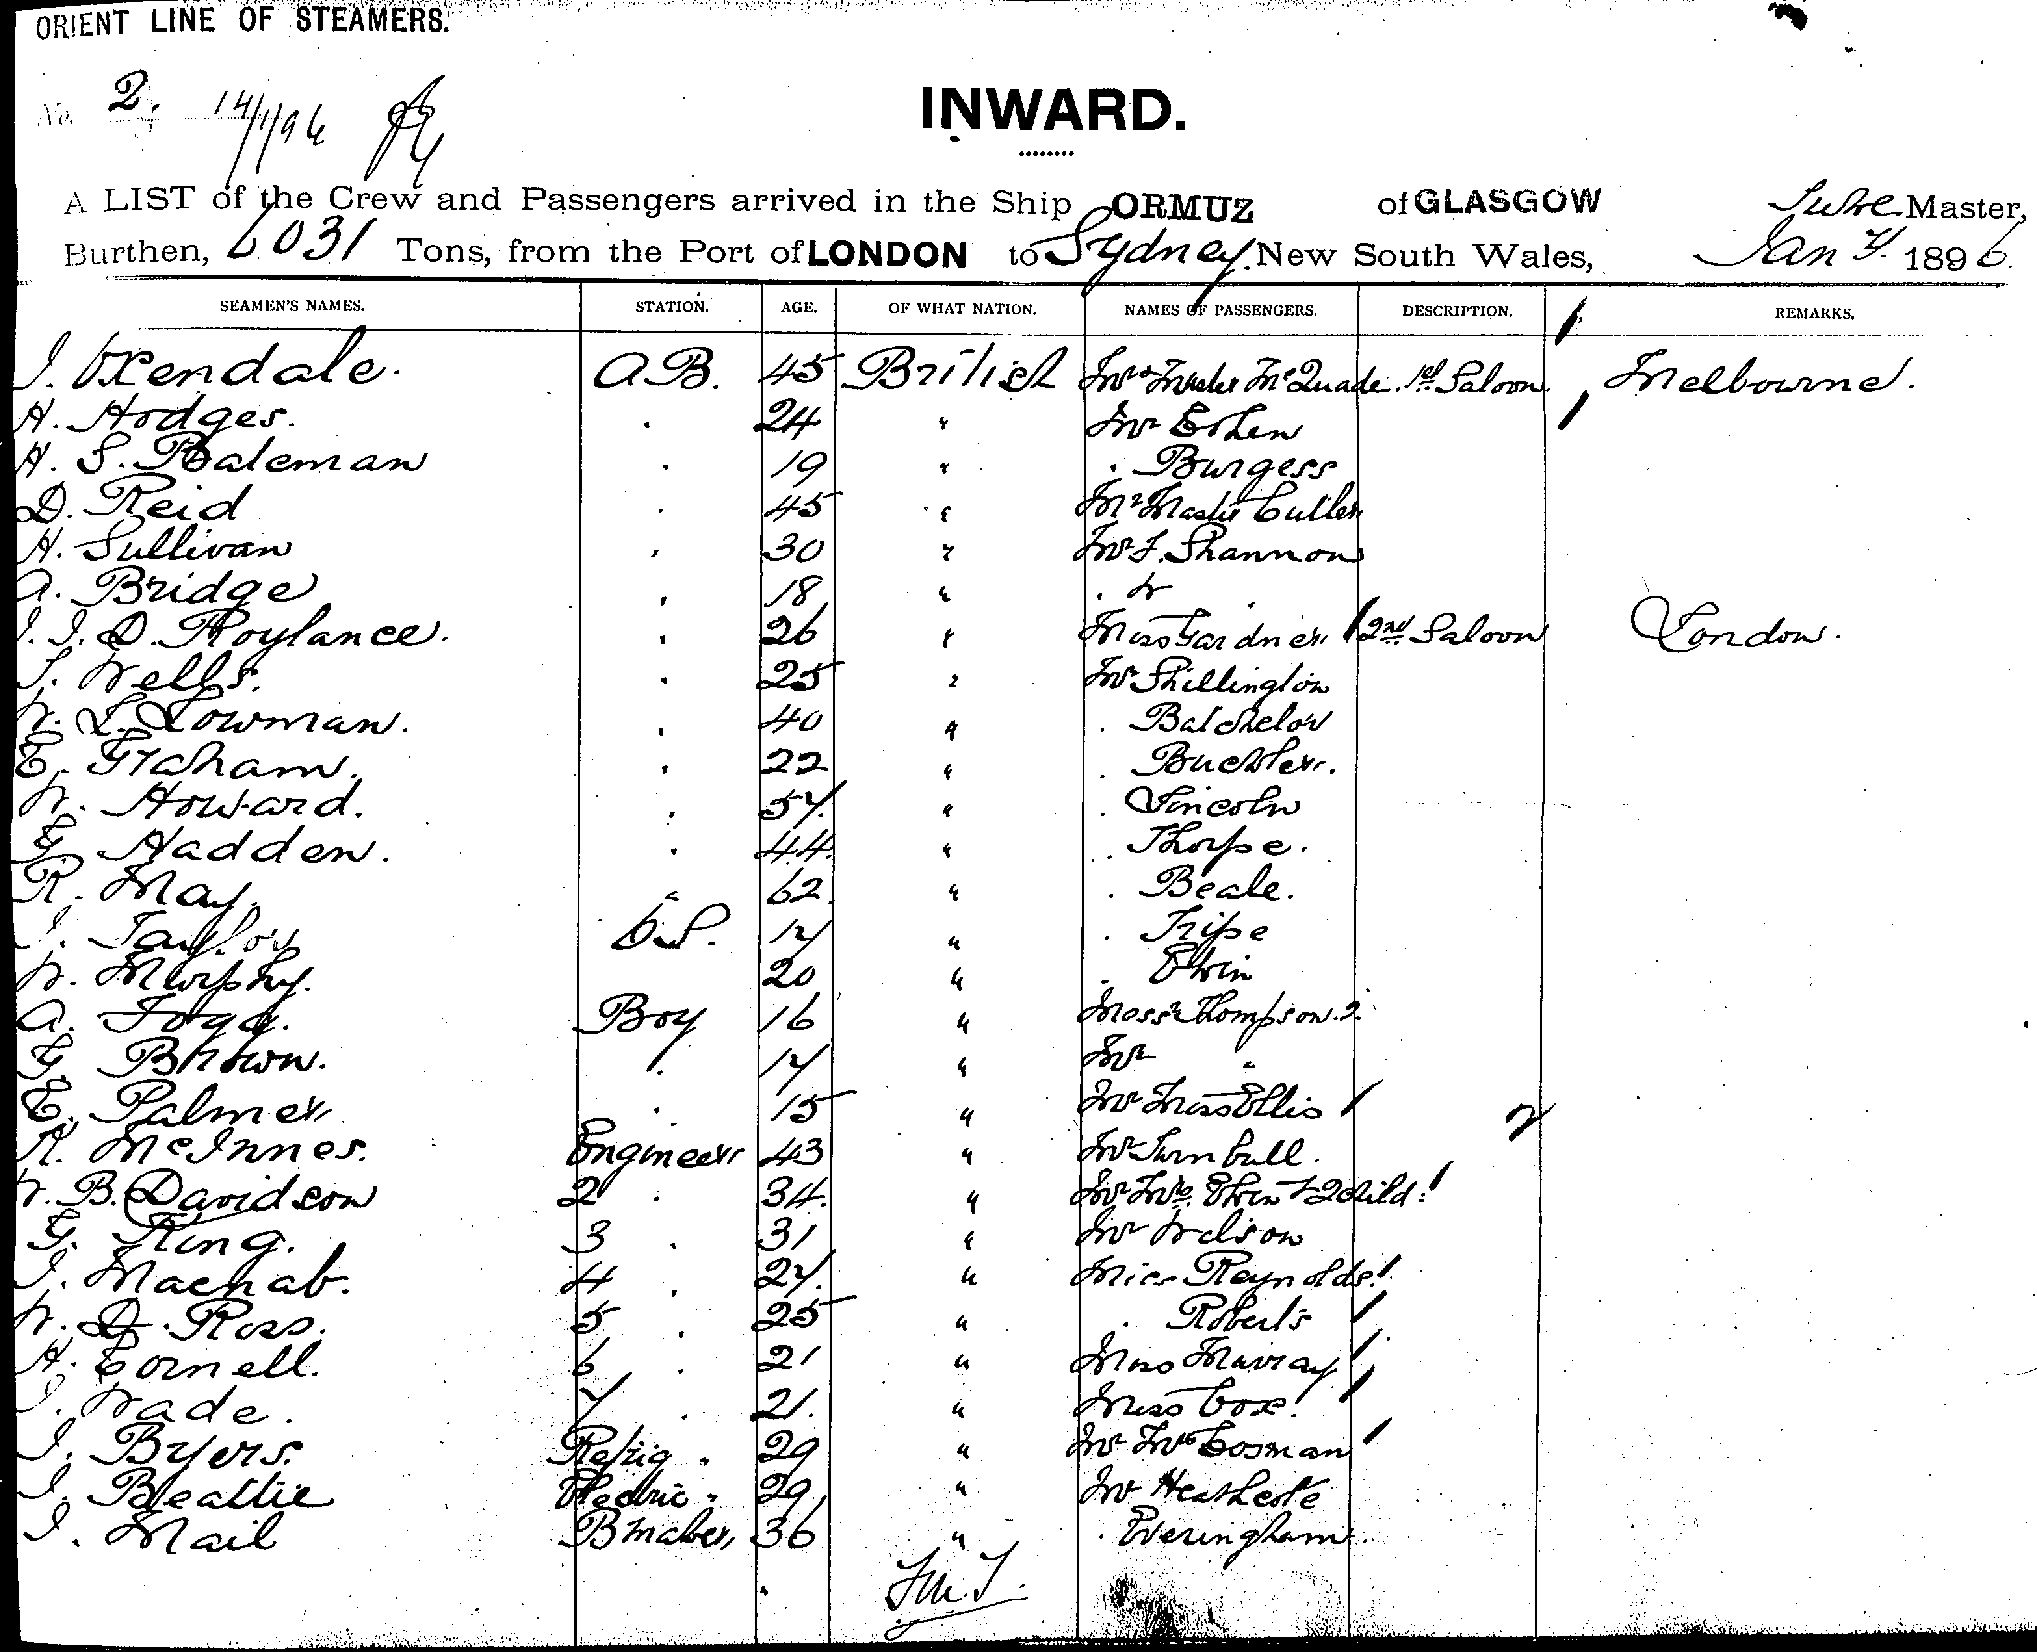 ORIENT LINE OF STEAMERS.
No. 2. 14/1/96
INWARD.
A LIST of the Crew and Passengers arrived in the Ship ORMUZ of GLASGOW Master,
Burthen, 6031 Tons, from the Port of LONDON to Sydney, New South Wales, Jan 7. 1896.
SEAMEN'S NAMES. STATION. AGE. OF WHAT NATION. NAMES OF PASSENGERS. DESCRIPTION. REMARKS.
J. Oxendale. A.B. 45 British Mrs Master McQuade. 1st Saloon Melbourne.
H. Hodges. . 24 " Mr Cohen
H. S. Bateman . 19 " . Burgess
D. Reid . 45 " Mr Master Cullen
H. Sullivan . 30 " Mr F. Shannon
A. Bridge . 18 " .
J. J. D. Roylance. . 26 " Miss Gardner 2nd Saloon London.
J. Wells. . 25 " Mr Shillington
W. L. Lowman. . 40 " . Batchelor
E. Graham. . 22 "
W. Howard. . 57. " . Lincoln
G. Hadden. . 44. " . Thorpe.
R. May. " 62. " . Beale.
J. Taylor O.S. 17 " . Tripe
W. Murphy. 20 "
A. Fogg. Boy 16 " Thompson. 2.
G. Brown. " 17 " Mr "
E. Palmer . 15 " Mr Miss Ellis
R. McInnes. Engineer 43 " Mr Turnbull.
W. B. Davidson 2 . 34. " Mr Mrs & 2 Child.
G. King. 3 . 31 " Mr Nelson
J. Macnab. 4 . 27. " Miss Reynolds
W. D. Ross. 5 . 25 " . Roberts
H. Cornell. 6 . 21 " Miss Murray
J. Wade. 7 . 21. " Miss Cox.
J. Byers. Refrig . 29 " Mr Mrs Cosman
J. Beattie Electric . 29 " Mr Heathcote
J. Mail B maker 36 " . Everingham.